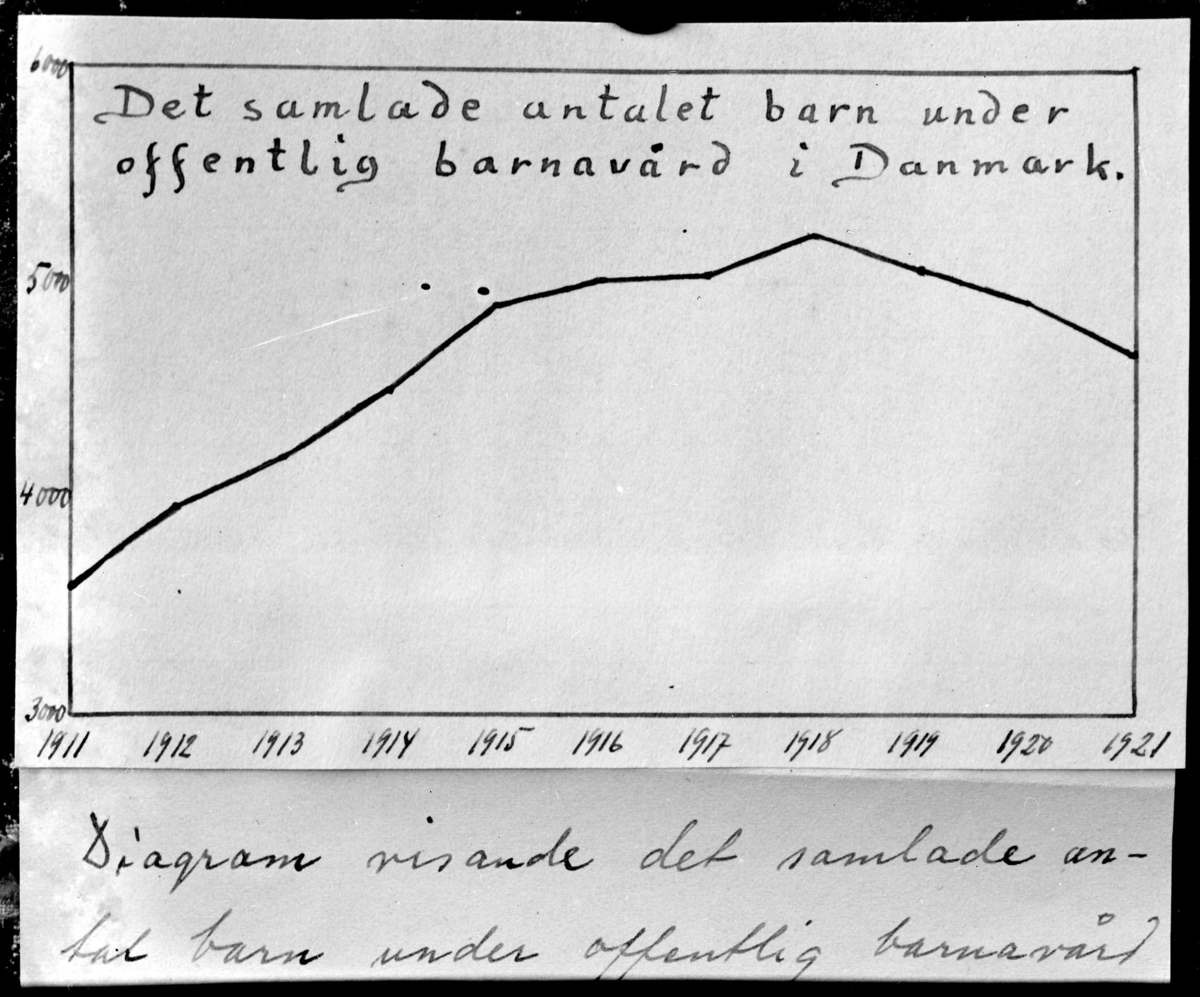 6000
Det samlade antalet barn under
offentlig barnavård i Danmark.
5000
4000
3000
1911 1912 1913 1914 1915 1916 1917 1918 1919 1920 1921
Diagram visande det samlade an-
tal barn under offentlig barnavård